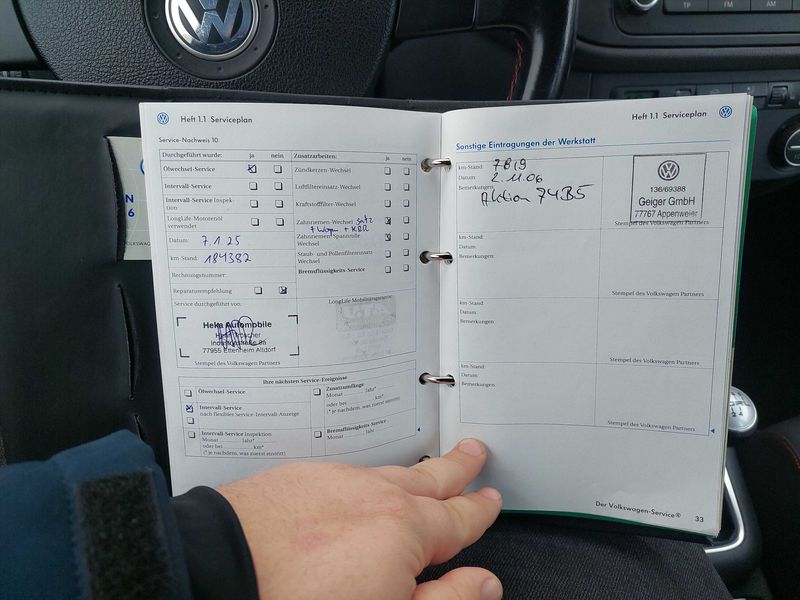 TP
FM
AM
Heft 1.1 Serviceplan
Service-Nachweis 10
Durchgeführt wurde: ja nein
Ölwechsel-Service
Intervall-Service
Intervall-Service Inspek-
tion
LongLife-Motorenöl
verwendet
Datum: 7.1.25
km-Stand: 184382
Rechnungsnummer:
Reparaturempfehlung
Service durchgeführt von:
Heka Automobile
Industriestraße 9a
77955 Ettenheim Altdorf
Stempel des Volkswagen Partners
Zusatzarbeiten: ja nein
Zündkerzen-Wechsel
Luftfiltereinsatz-Wechsel
Kraftstofffilter-Wechsel
Zahnriemen-Wechsel Satz
+ Wapu + KBR
Zahnriemen-Spannrolle-
Wechsel
Staub- und Pollenfiltereinsatz-
Wechsel
Bremsflüssigkeits-Service
LongLife Mobilitätsgarantie
Ihre nächsten Service-Ereignisse
Ölwechsel-Service
Intervall-Service
nach flexibler Service-Intervall-Anzeige
Intervall-Service Inspektion
Monat Jahr*
oder bei km*
(* je nachdem, was zuerst eintritt)
Zusatzumfänge
Monat Jahr*
oder bei km*
(* je nachdem, was zuerst eintritt)
Bremsflüssigkeits-Service
Monat Jahr
Heft 1.1 Serviceplan
Sonstige Eintragungen der Werkstatt
km-Stand: 7819
Datum: 2.11.06
Bemerkungen:
Aktion 74B5
136/69388
Geiger GmbH
77767 Appenweier
Stempel des Volkswagen Partners
km-Stand:
Datum:
Bemerkungen:
Stempel des Volkswagen Partners
km-Stand:
Datum:
Bemerkungen:
Stempel des Volkswagen Partners
km-Stand:
Datum:
Bemerkungen:
Stempel des Volkswagen Partners
Der Volkswagen-Service® 33
N
6
VOLKSWAGEN